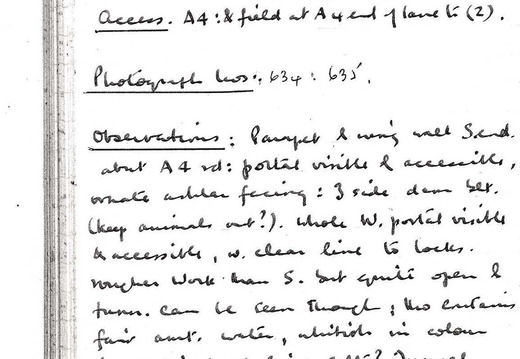 Access. A4: & field at A4 end of lane to (2).
Photograph nos: 634: 635.
Observations: Parapet & wing wall S. end.
abut A4 rd: portal visible & accessible,
ornate ashlar facing: 3 side
(keep animals out?). Whole W. portal visible
& accessible, w. clear line to locks.
rougher work than S. but quite open &
can be seen through; tho contains
fair amt. water, whitish in colour